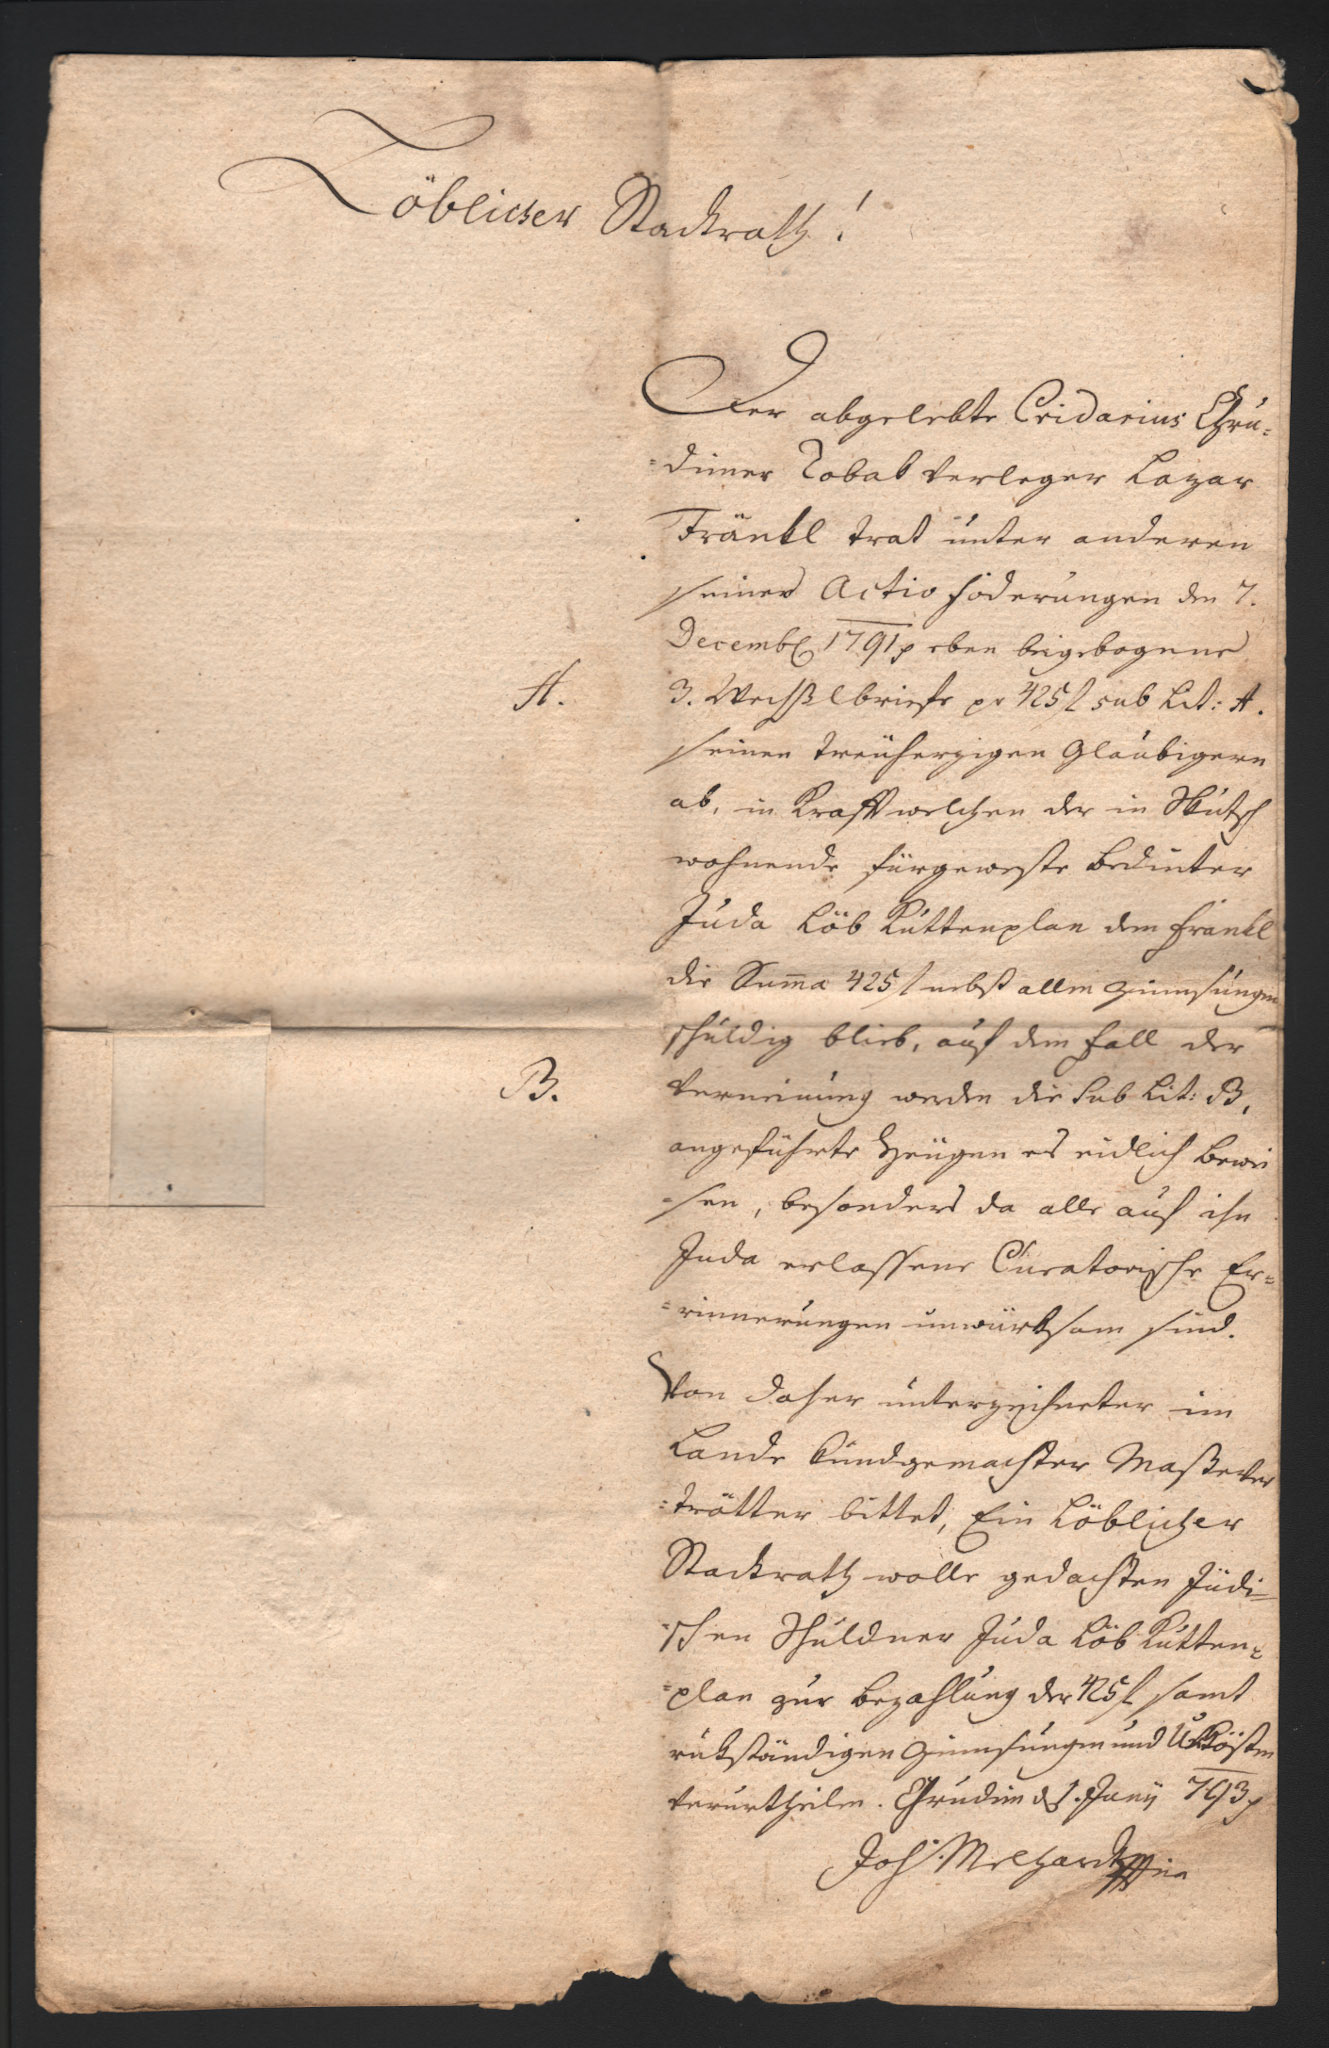 Löblicher Stadtrath!
Der abgelebte Cridarius Chru=
=dimer Tobak Verleger Lazar
Fränkl trat unter anderen
seiner Actio foderungen den 7.
Decemb 1791 eben beigebogene
A.
3. Wechßlbriefe pr 425 f sub Lit: A.
seinen treüherzigen Glaubigern
ab, in Krafft welchen der in Skutsch
wohnende fürgeweste
Juda Löb Kuttenplan dem Fränkl
die Suma 425 f nebst allen Zinnsungen
schuldig blieb, auf dem Fall der
B.
Verneinung werden die sub Lit: B,
angeführte Zeügen es eidlich bewei
=sen, besonders da alle auf ihn
Juda erlassene Curatorische Er=
=rinnerungen unwürksam sind.
Von daher unterzeichneter im
Lande kundgemachter Maßaver
=trötter bittet, Ein Löblicher
Stadtrath wolle gedachten Jüdi=
=schen Schuldner Juda Löb Kutten=
=plan zur Bezahlung der 425 f samt
rükständigen Zinnsungen und Unkösten
verurtheilen. Chrudim d 1. Juny 793
Joh.